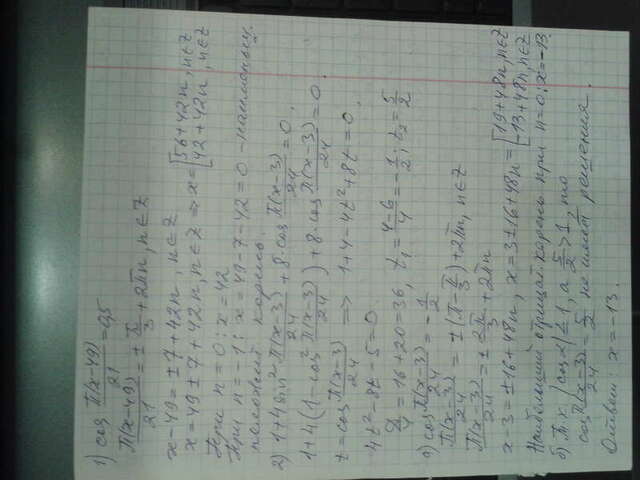 1) cos π(x-49)/21 = 0,5
π(x-49)/21 = ± π/3 + 2πn, n∈Z
x-49 = ±7+42n, n∈Z
x = 49±7+42n, n∈Z => x = [56+42n, n∈Z
[42+42n, n∈Z
При n=0: x=42
При n=-1: x=49-7-42=0 - наименьш.
положит корень.
2) 1+4sin² π(x-3)/24 + 8·cos π(x-3)/24 = 0.
1+4(1-cos² π(x-3)/24) + 8·cos π(x-3)/24 = 0.
t = cos π(x-3)/24 => 1+4-4t²+8t=0.
4t²-8t-5=0.
D/4 = 16+20=36, t₁ = (4-6)/4 = -1/2; t₂ = 5/2
а) cos π(x-3)/24 = -1/2
π(x-3)/24 = ±(π-π/3)+2πn, n∈Z
π(x-3)/24 = ± 2π/3 + 2πn
x-3=±16+48n, x=3±16+48n = [19+48n, n∈Z
[-13+48n, n∈Z
Наибольший отрицат. корень при n=0: x=-13.
б) Т.к. |cosα|≤1, а 5/2>1, то
cos π(x-3)/24 = 5/2 не имеет решения.
Ответ: x=-13.